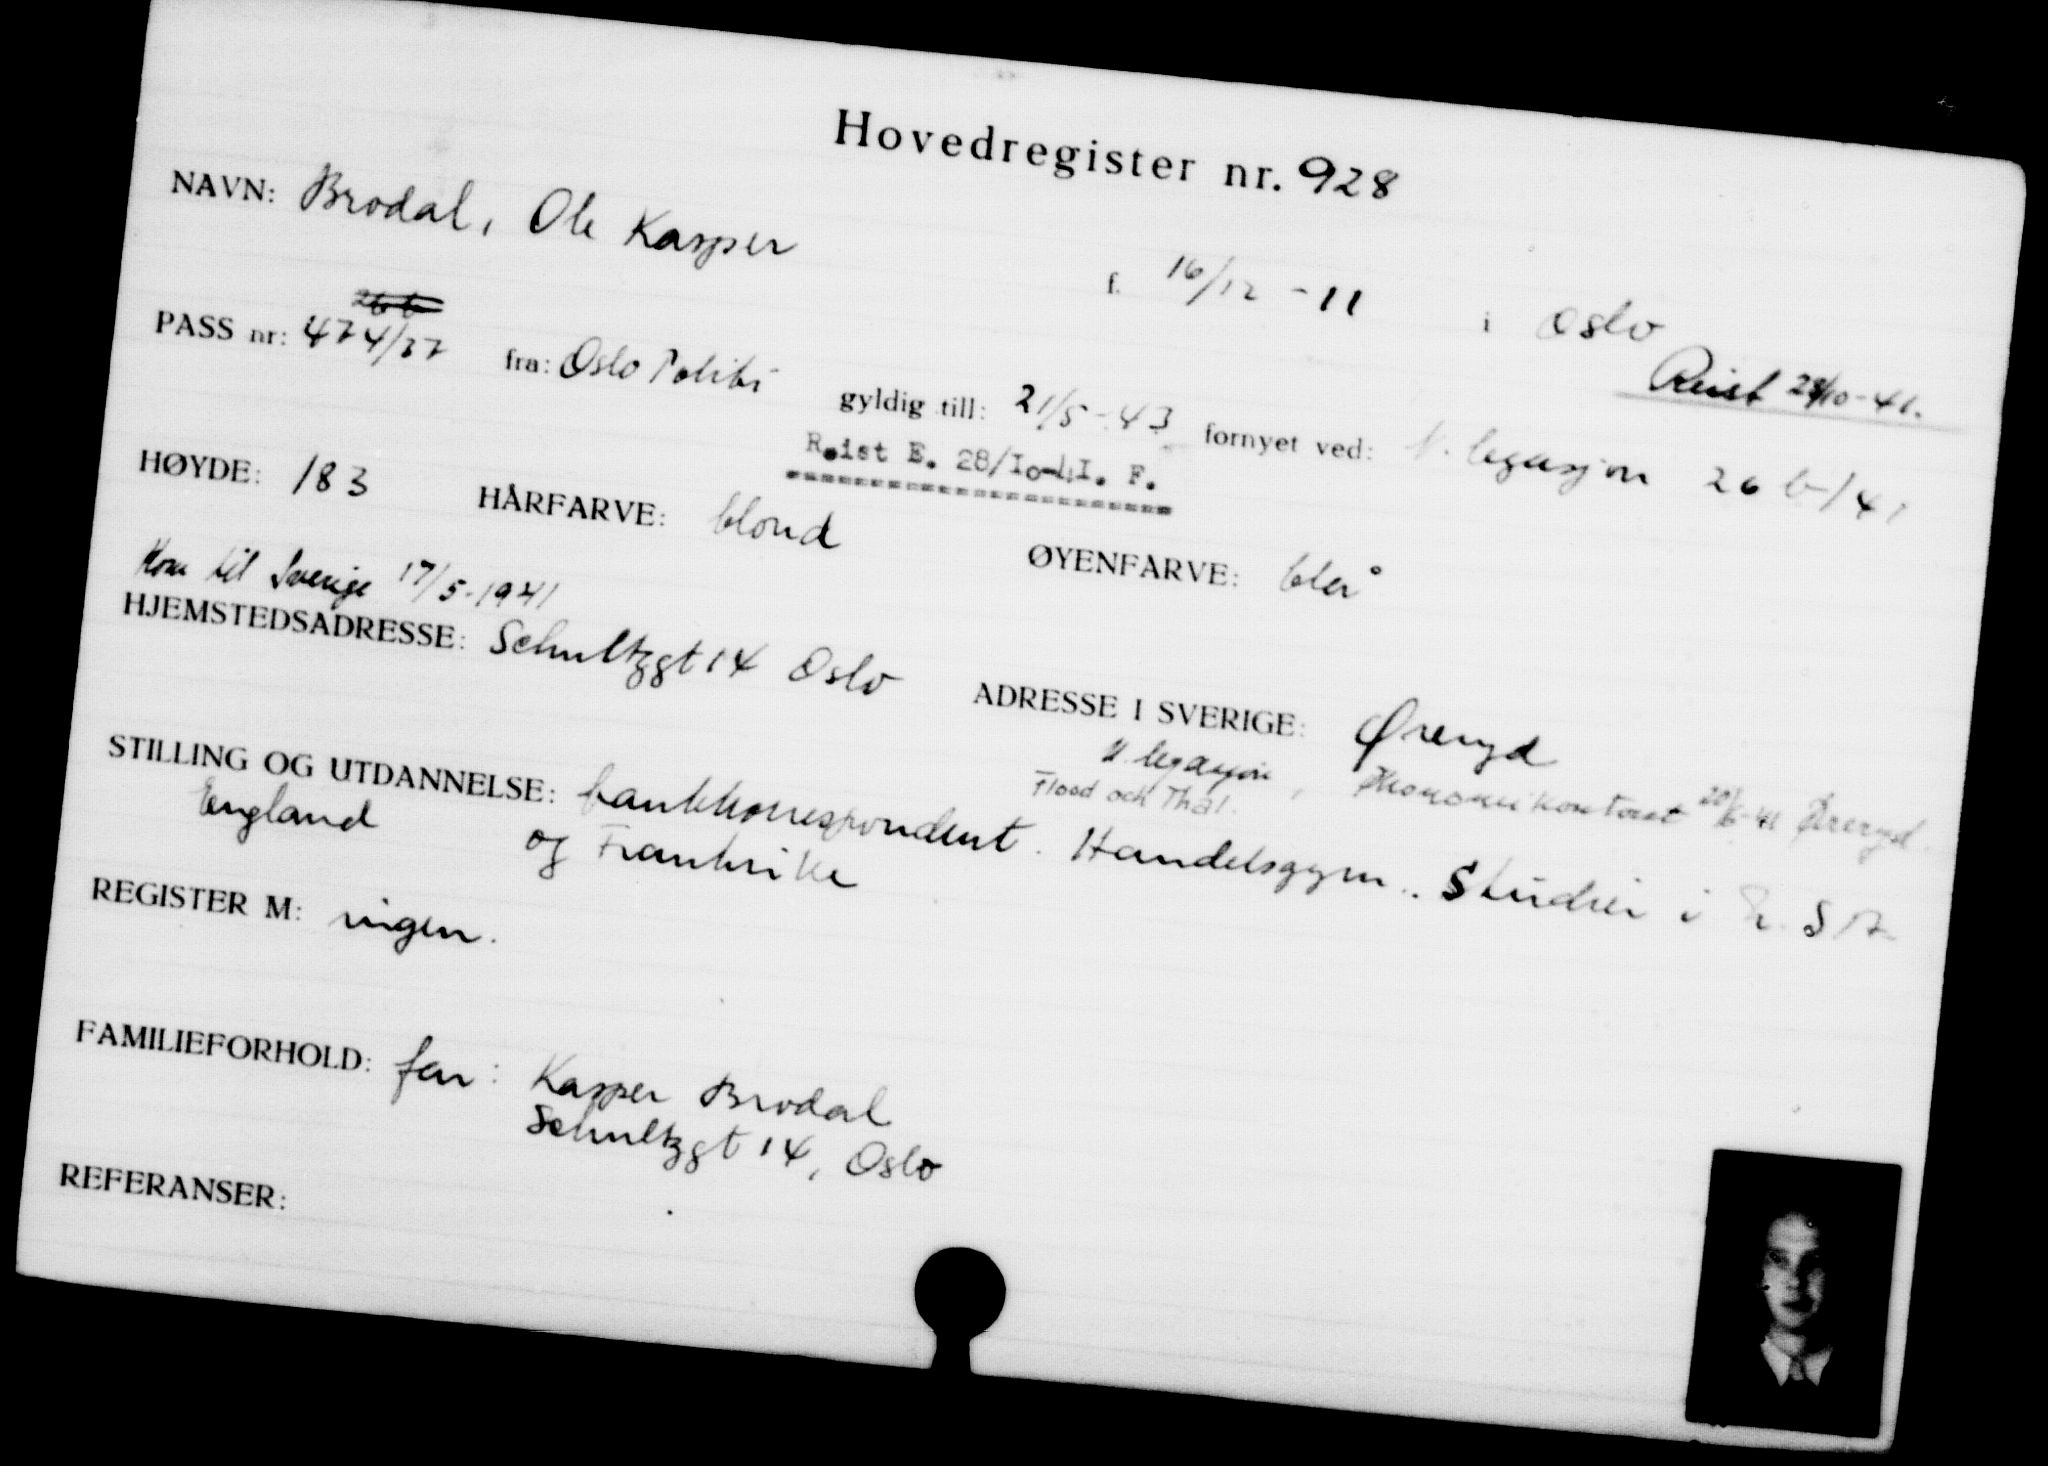 Hovedregister nr. 928
NAVN: Brodal, Ole Kasper f. 16/12 - 11 i Oslo
Reist 28/10-41.
PASS nr: 474/37 fra: Oslo Politi gyldig till: 21/5-43 fornyet ved: N. legasjon 26 6/41
Reist E. 28/Io-4I. F.
HØYDE: 183 HÅRFARVE: blond ØYENFARVE: blå
Kom til Sverige 17/5-1941
HJEMSTEDSADRESSE: Schultzgt 14 Oslo ADRESSE I SVERIGE: Øreryd
N. legasjon, Økonomikontoret 20/6-41 Øreryd.
Flood och Thal.
STILLING OG UTDANNELSE: bankkorrespondent. Handelsgym.. Studier i U.S.A.
England og Frankrike
REGISTER M: ingen.
FAMILIEFORHOLD: far: Kasper Brodal
Schultzgt 14, Oslo
REFERANSER: